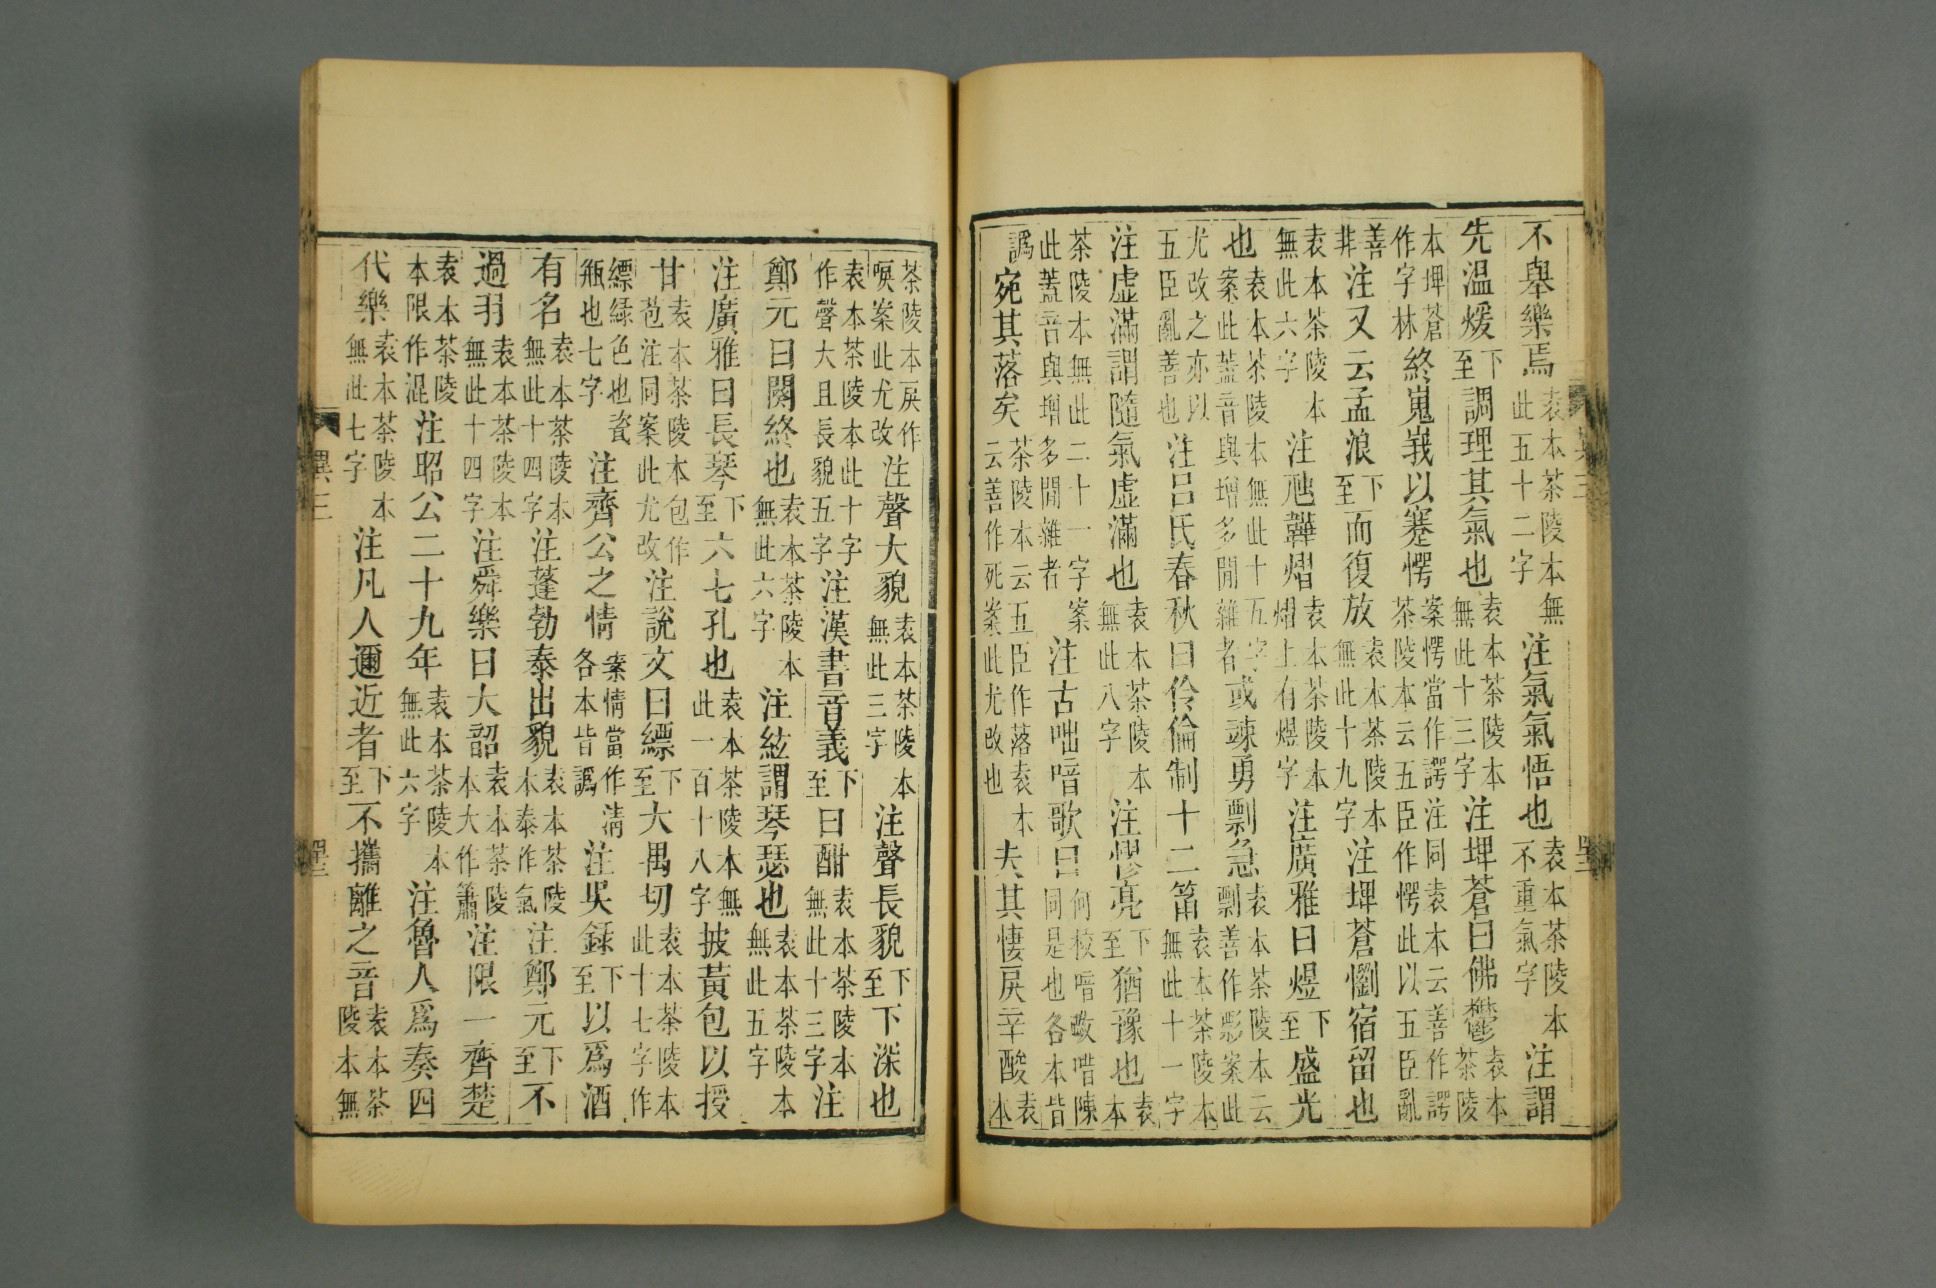 不舉樂焉袁本茶陵本無此五十二字注氣氣悟也袁本茶陵本不重氣字注謂
先溫煖下至調理其氣也袁本茶陵本無此十三字注埤蒼曰佛鬱袁本茶陵
本埤蒼作字林終嵬峩以蹇愕案愕當作諤注同袁本云善作諤茶陵本云五臣作愕此以五臣亂
善非注又云孟浪下至而復放袁本茶陵本無此十九字注埤蒼懰宿留也
袁本茶陵本無此六字注虺韡熠袁本茶陵本熠上有煜字注廣雅曰煜下至盛光
也袁本茶陵本無此十五字案此蓋音與增多閒雜者或竦勇剽急袁本茶陵本云剽善作彯案此
尤改之亦以五臣亂善也注呂氏春秋曰伶倫制十二笛袁本茶陵本無此十一字
注虛滿謂隨氣虛滿也袁本茶陵本無此八字注憀亮下至猶豫也袁本
茶陵本無此二十一字案此蓋音與增多閒雜者注古咄喑歌曰何校喑改唶陳同是也各本皆
譌宛其落矣茶陵本云五臣作落袁本云善作死案此尤改也夫其悽戾辛酸袁本
茶陵本戾作唳案此尤改注聲大貌袁本茶陵本無此三字注聲長貌下至下深也
袁本茶陵本此十字作聲大且長貌五字注漢書音義下至曰酣袁本茶陵本無此十三字注
鄭元曰闋終也袁本茶陵本無此六字注絃謂琴瑟也袁本茶陵本無此五字
注廣雅曰長琴下至六七孔也袁本茶陵本無此一百十八字披黃包以授
甘袁本茶陵本包作苞注同案此尤改注說文曰縹下至大禺切袁本茶陵本此十七字作
縹綠色也瓷瓶也七字注齊公之情案情當作淸各本皆譌注吳錄下至以爲酒
有名袁本茶陵本無此十四字注蓬勃泰出貌袁本茶陵本泰作氣注鄭元下至不
過羽袁本茶陵本無此十四字注舜樂曰大韶袁本茶陵本大作簫注限一齊楚
袁本茶陵本限作混注昭公二十九年袁本茶陵本無此六字注魯人爲奏四
代樂袁本茶陵本無此七字注凡人邇近者下至不攜離之音袁本茶陵本無
異三